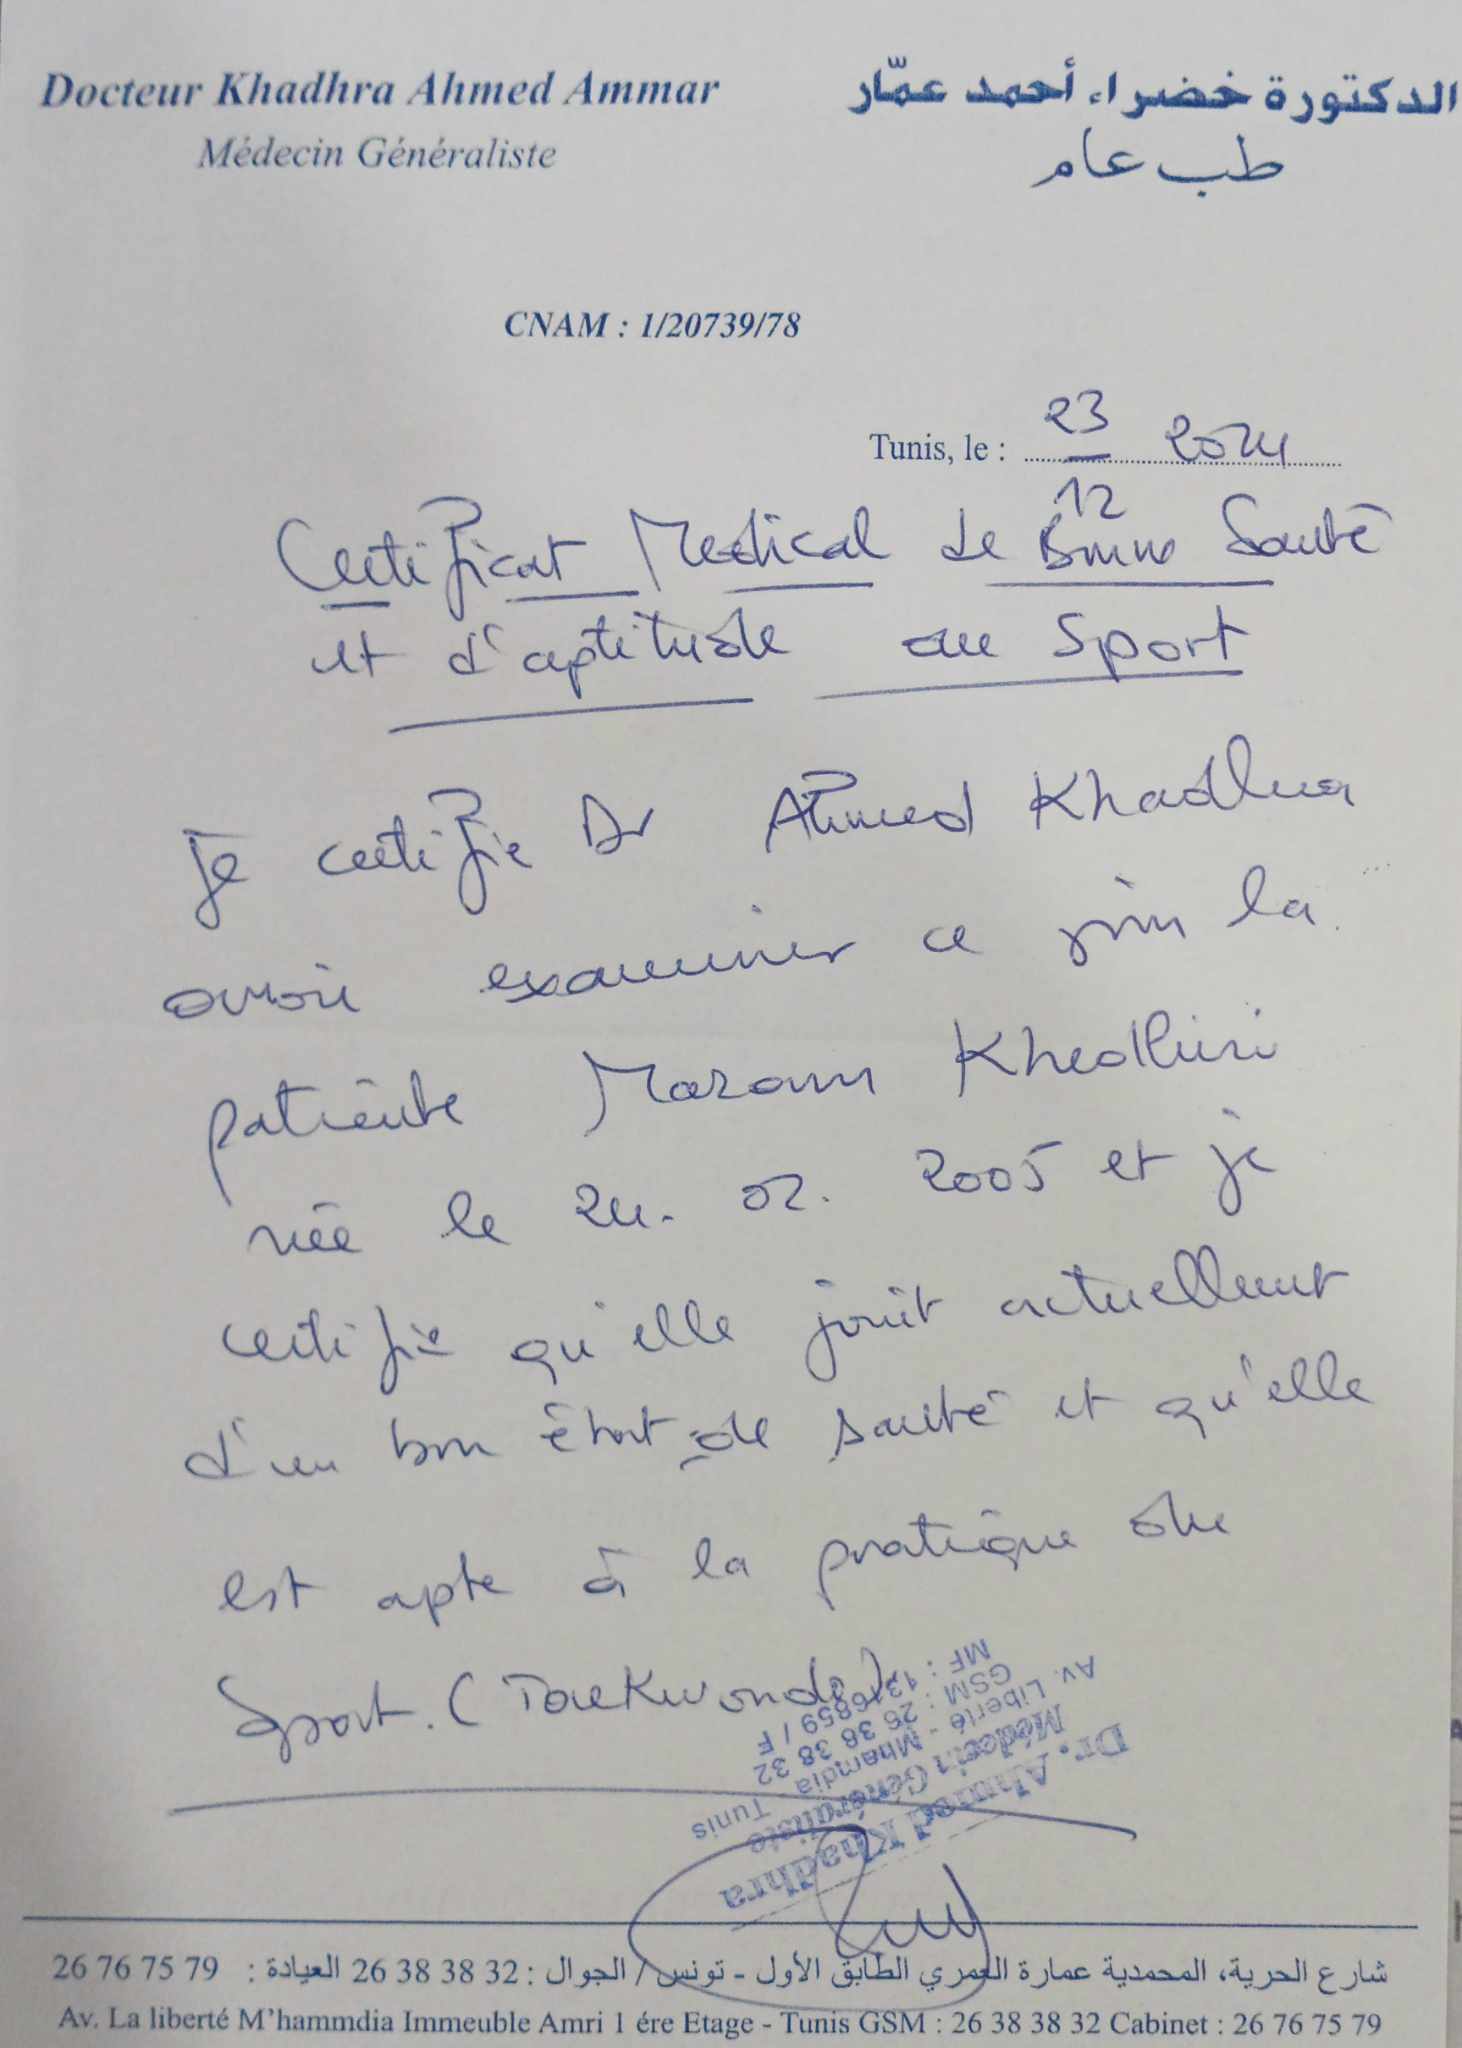 Docteur Khadhra Ahmed Ammar
الدكتورة خضراء أحمد عمّار
Médecin Généraliste
طب عام
CNAM : 1/20739/78
Tunis, le : 23/12 2024
Certificat Medical de Bonne Santé
et d'aptitude au Sport
Je certifie Dr Ahmed Khadhra
avoir examiner ce jour la
patiente Maram Khedhiri
née le 24. 02. 2005 et je
certifie qu'elle jouit actuellement
d'un bon état de santé et qu'elle
est apte à la pratique du
Sport. (Taekwondo).
Dr. Ahmed Khadhra
Médecin Généraliste
Av. Liberté - Mhamdia Tunis
GSM : 26 38 38 32
MF : 1316859 / F
شارع الحرية، المحمدية عمارة العمري الطابق الأول - تونس / الجوال : 32 38 38 26 العيادة : 79 75 76 26
Av. La liberté M'hammdia Immeuble Amri 1 ére Etage - Tunis GSM : 26 38 38 32 Cabinet : 26 76 75 79